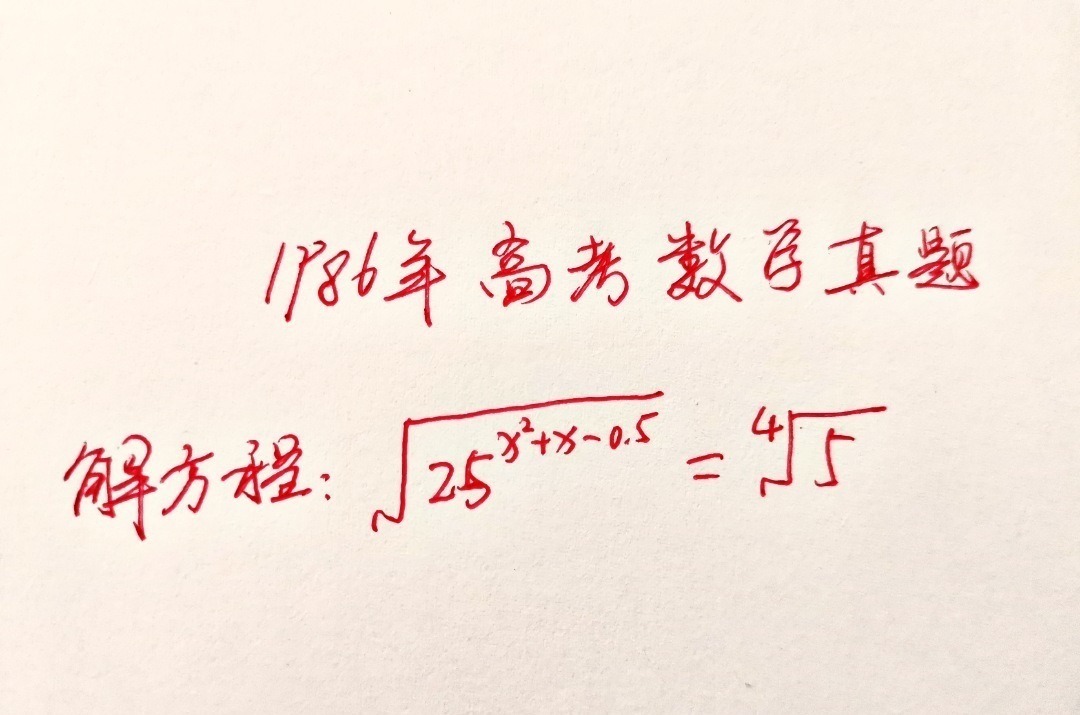 1986年高考数学真题
解方程: √25^(x²+x-0.5) = ⁴√5